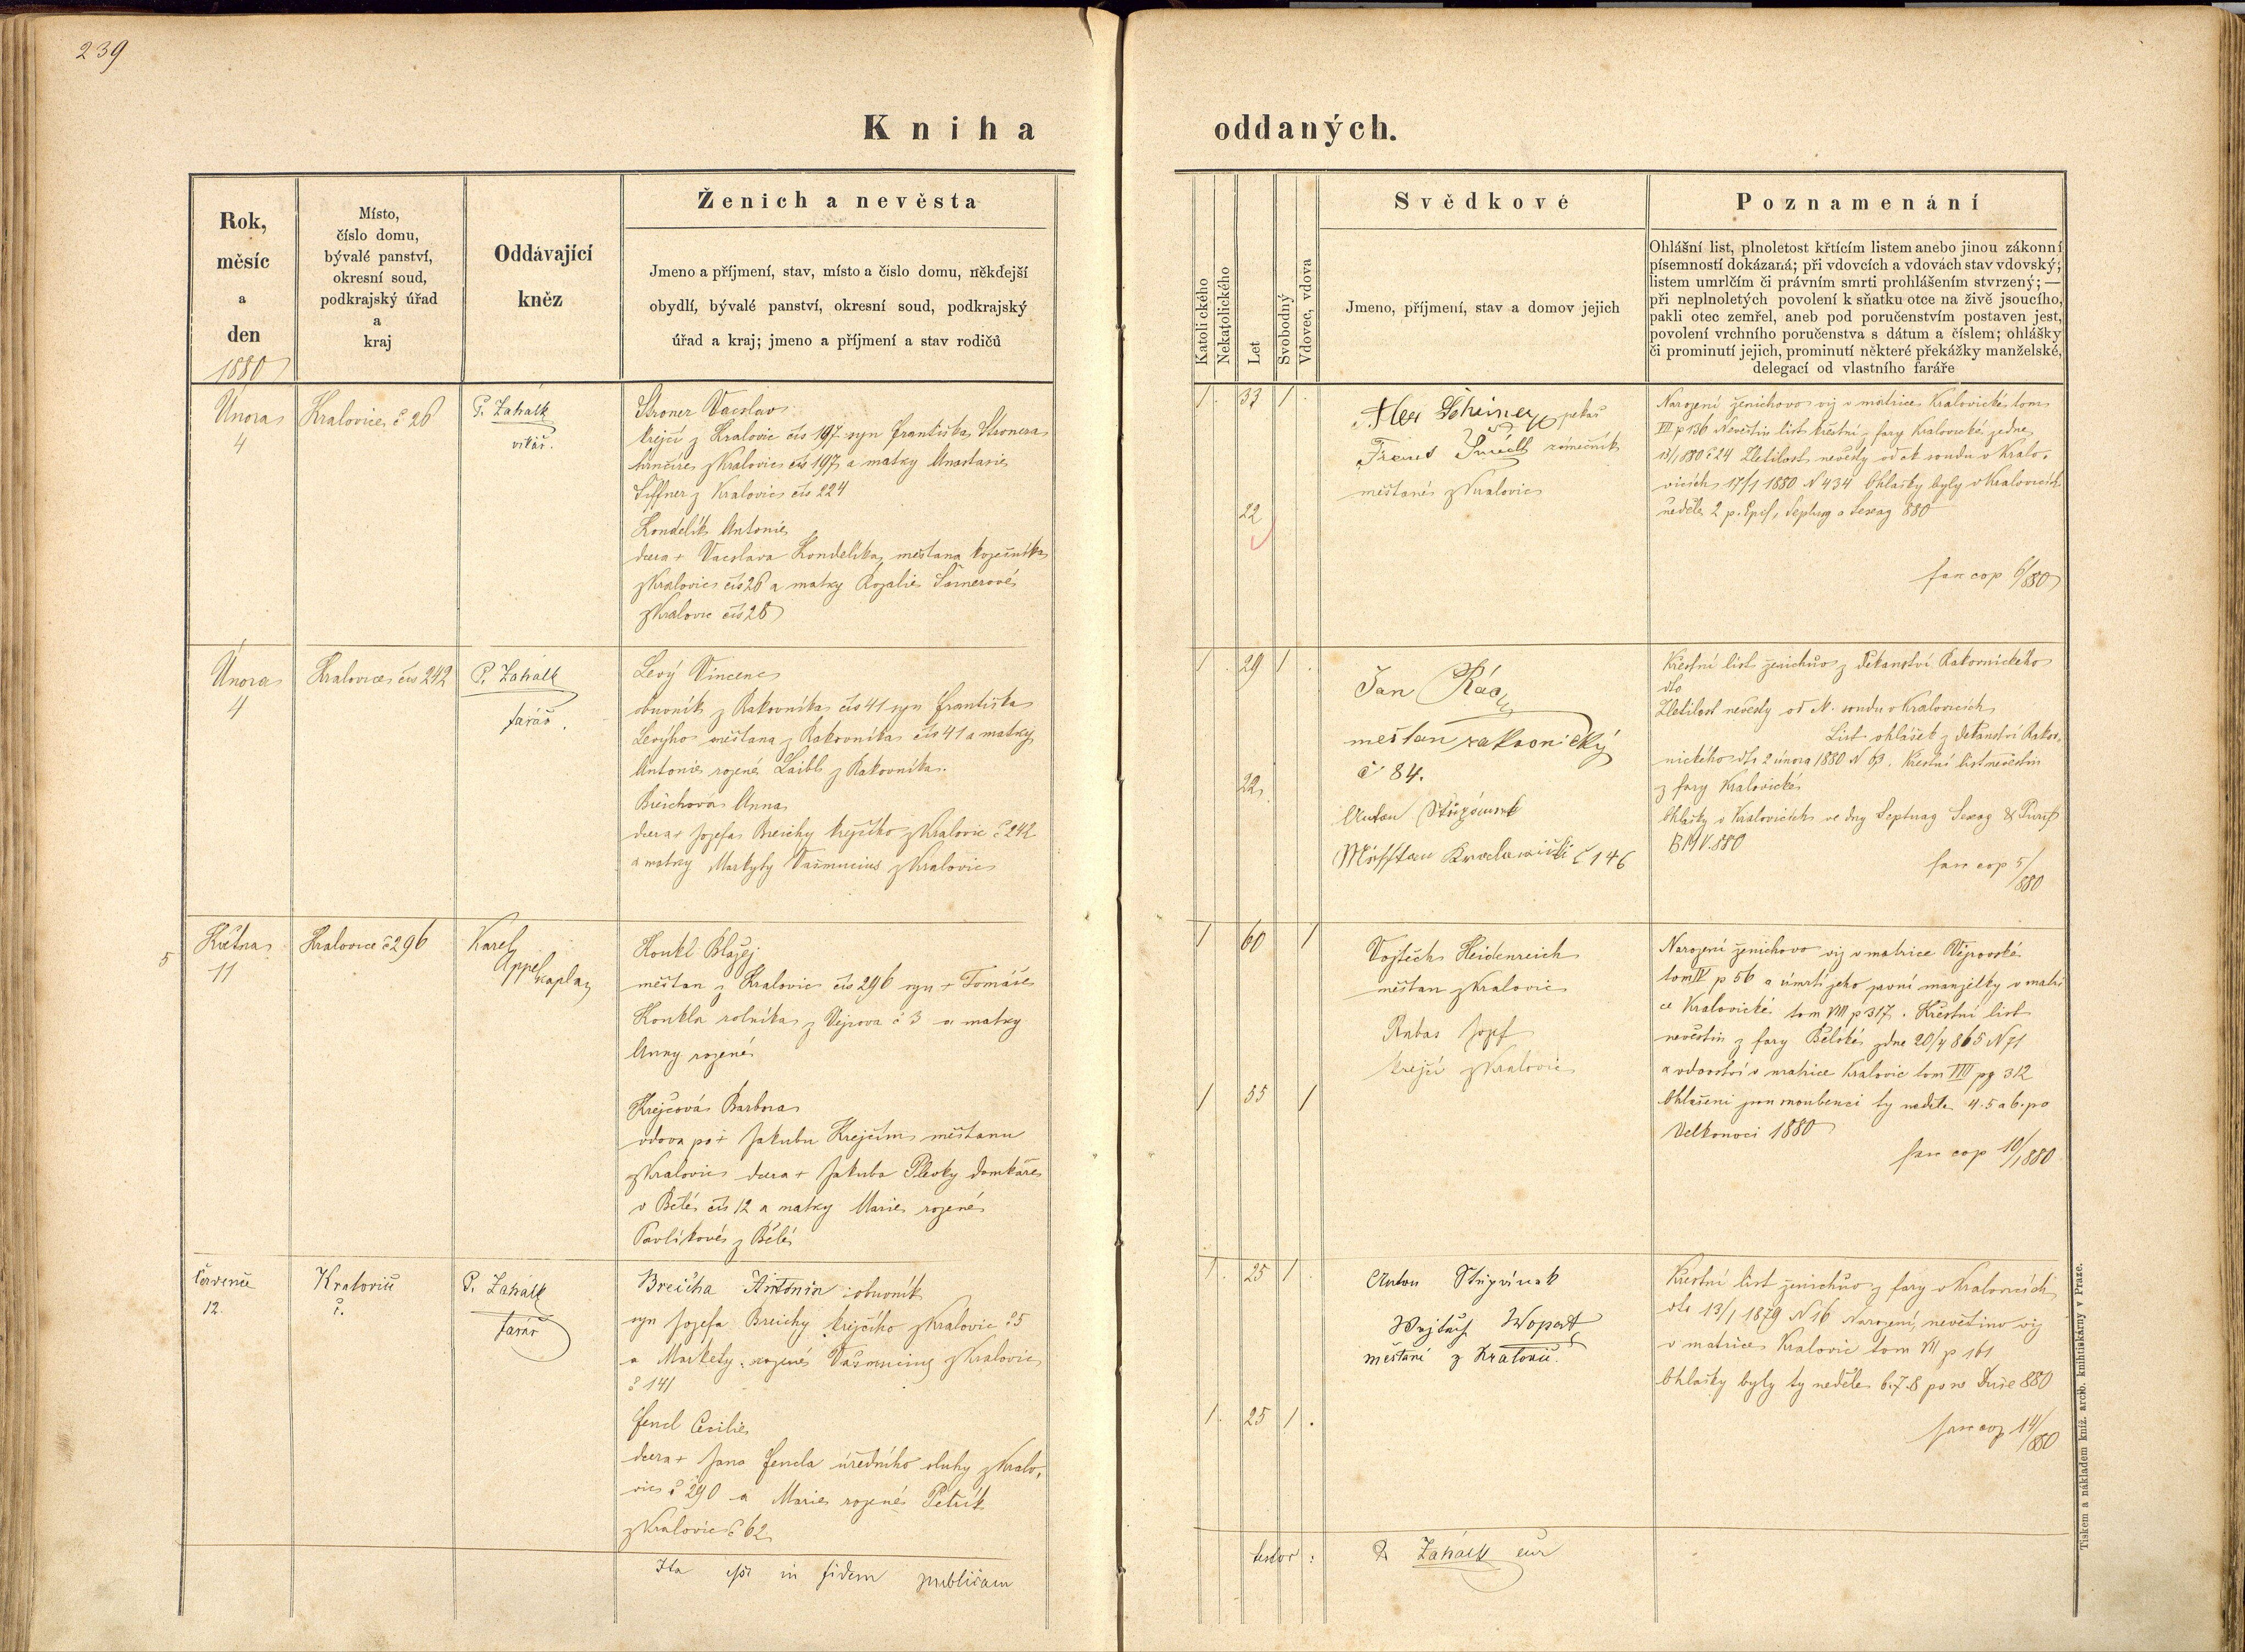 239
Kniha oddaných.
Rok,
měsíc
a
den
1880
Místo,
číslo domu,
bývalé panství,
okresní soud,
podkrajský úřad
a
kraj
Oddávající
kněz
Ženich a nevěsta
Jmeno a příjmení, stav, místo a číslo domu, někdejší
obydlí, bývalé panství, okresní soud, podkrajský
úřad a kraj; jmeno a příjmení a stav rodičů
Katolického
Nekatolického
Let
Svobodný
Vdovec, vdova
Svědkové
Jmeno, příjmení, stav a domov jejich
Poznamenání
Ohlášní list, plnoletost křtícím listem anebo jinou zákonní
písemností dokázaná; při vdovcích a vdovách stav vdovský;
listem umrlčím či právním smrti prohlášením stvrzený; —
při neplnoletých povolení k sňatku otce na živě jsoucího,
pakli otec zemřel, aneb pod poručenstvím postaven jest,
povolení vrchního poručenstva s dátum a číslem; ohlášky
či prominutí jejich, prominutí některé překážky manželské,
delegací od vlastního faráře
Února
4
Kralovice č 26
P. Zahálk
vikář.
Stroner Vacslav
krejčí z Kralovic čís 197 syn Františka Stronera
hrnčíře z Kralovic čís 197 a matky Anastasie
Siffner z Kralovic čís 224
Kondelík Antonie
dcera + Vacslava Kondelíka, měšťana kožešníka
z Kralovic čís 26 a matky Rozalie
z Kralovic čís 28
1 33 1
22
pekař
zámečník
měšťané z Kralovic
Narození ženichovo viz v matrice Kralovické tom
VII p 136 Nevěstin list křestní z fary Kralovické zedne
1880 č 24 Zletilost nevěsty od ok soudu v Kralo-
vicích 17/1 1880 N 434 Ohlášky byly v Kralovicích
neděle 2 p. Epif, Septuag a Sexag 880
fasc cop 6/880
Února
4
Kralovice čís 242
P. Zahálk
farář.
Levý Vincenc
obuvník z Rakovníka čís 41 syn Františka
Levýho měšťana z Rakovníka čís 41 a matky
Antonie rozené Laibl z Rakovníka.
Breichová Anna
dcera + Jozefa Breichy krejčího z Kralovic č 242
a matky Markyty Vašmucius z Kralovic
1 29 1
22
Jan
měšťan rakovnický
č 84.
Anton Štěpánek
č 146
Křestní list ženichův z děkanství Rakovnického
dto
Zletilost nevěsty od ok. soudu v Kralovicích
List ohlášek z děkanství Rakov-
nického dto 2 února 1880 N 63. Křestní list nevěstin
z fary Kralovické
Ohlášky v Kralovicích ve dny Septuag Sexag & Purif
B M V. 880
fasc cop 5/880
5
Května
11
Kralovice č 296
Karel
Appel kaplan
Konkl Blažej
měšťan z Kralovic čís 296 syn + Tomáše
Konkla rolníka z Výrova č 3 a matky
Anny rozené
Krejčová Barbora
vdova po + Jakubu Krejčím měšťanu
z Kralovic dcera + Jakuba Plevky domkáře
v Bělé čís 12 a matky Marie rozené
Pavlíkové z Bělé
1 60 1
1 55 1
Vojtěch Heidenreich
měšťan z Kralovic
Rabas Jozef
krejčí z Kralovic
Narození ženichovo viz v matrice Výrovské
tom IV p 56 a úmrtí jeho první manželky v matri
ce Kralovické tom VIII p 317. Křestní list
nevěstin z fary Bělské zdne 20/4 865 N 71
a vdovství v matrice Kralovic tom VIII pg 312
Ohlášení jsou snoubenci ty neděle 4. 5 a 6. po
Velkonoci 1880
fasc cop 10/1880
Července
12.
Kralovic
č.
P. Zahálk
farář
Breicha Antonín obuvník
syn Jozefa Breichy krejčího z Kralovic č 5
a Markety rozené Vašmucius z Kralovic
č 141
Fencl Cecilie
dcera + Jana Fencla úředního sluhy z Kralo-
vic č 290 a Marie rozené Petrik
z Kralovic č 62
1 25 1
1 25 1
Anton Štěpánek
Wojtěch Wopat
měšťané z Kralovic.
Křestní list ženichův z fary v Kralovicích
dto 13/1 1879 N 16 Narození nevěstino viz
v matrice Kralovic tom VII p 161
Ohlášky byly ty neděle 6. 7. 8 po sv Duše 880
fasc cop 14/880
Ita esse in fidem publicam
testor: P Zahálk
Tiskem a nákladem kníž. arcib. knihtiskárny v Praze.